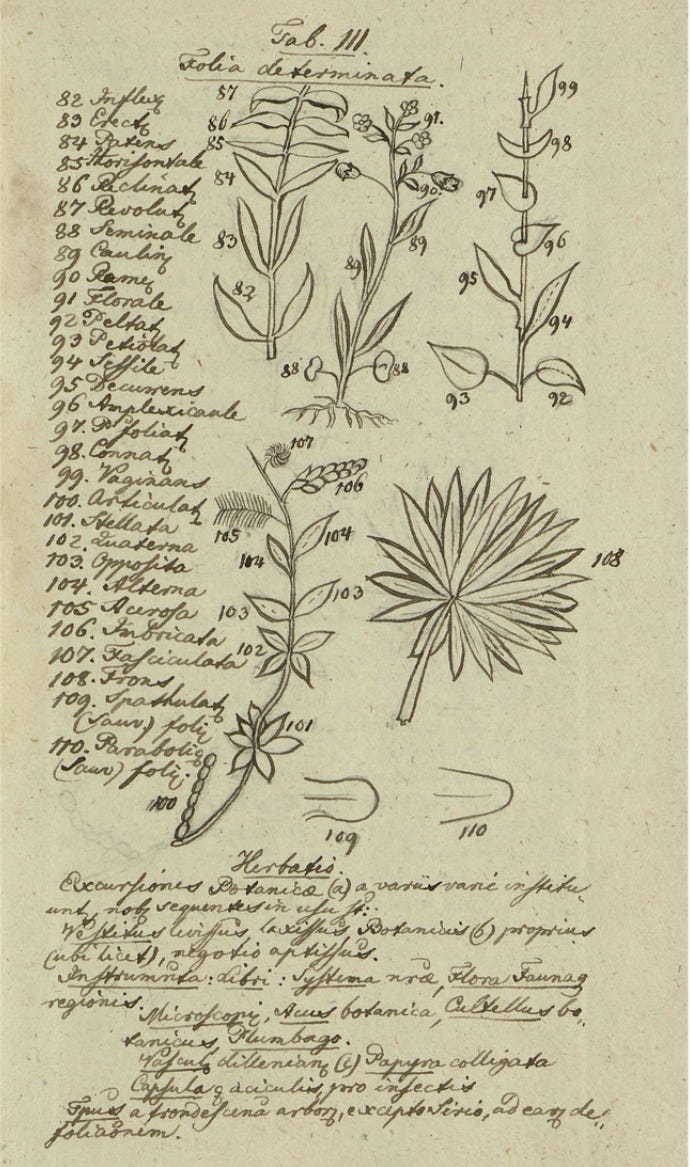 Tab. III.
Folia determinata.
82 Inflex
83 Erect
84 Patens
85 Horisontale
86 Reclinat
87 Revolut
88 Seminale
89 Caulin
90 Rame
91 Florale
92 Peltat
93 Petiolat
94 Sessile
95 Decurrens
96 Amplexicaule
97. Pfoliat
98. Connat
99. Vaginans
100. Articulat
101. Stellata
102. Quaterna
103. Opposita
104. Alterna
105 Acerosa
106. Imbricata
107. Fasciculata
108. Frons
109. Spathulat
(Sauv.) foli
110. Parabolic
(Sauv) foli.
87
86
85
84
83
82
91.
90
89
89
88
88
99
98
97
96
95
94
93
92
107
106
105
104
104
103
103
102
101
100
108
109
110
Herbatio.
Excursiones Botanicæ (a) a variis varie institu-
unt, nob sequentes in usu st:
Vestitus levissus, laxissus, Botanicis (b) proprius
(ubi licet), negotio aptissus.
Instrumnta: Libri: Systema nræ, Flora Faunaq
regionis.
Microscopi, Acus botanica, Cultellus bo-
tanicus, Plumbago.
Vascul dillenian (c) Papyra colligata
Capsula c aciculis, pro insectis
Tpus a frondescena arbor, excepto Sirio, ad ear de-
foliaonem.